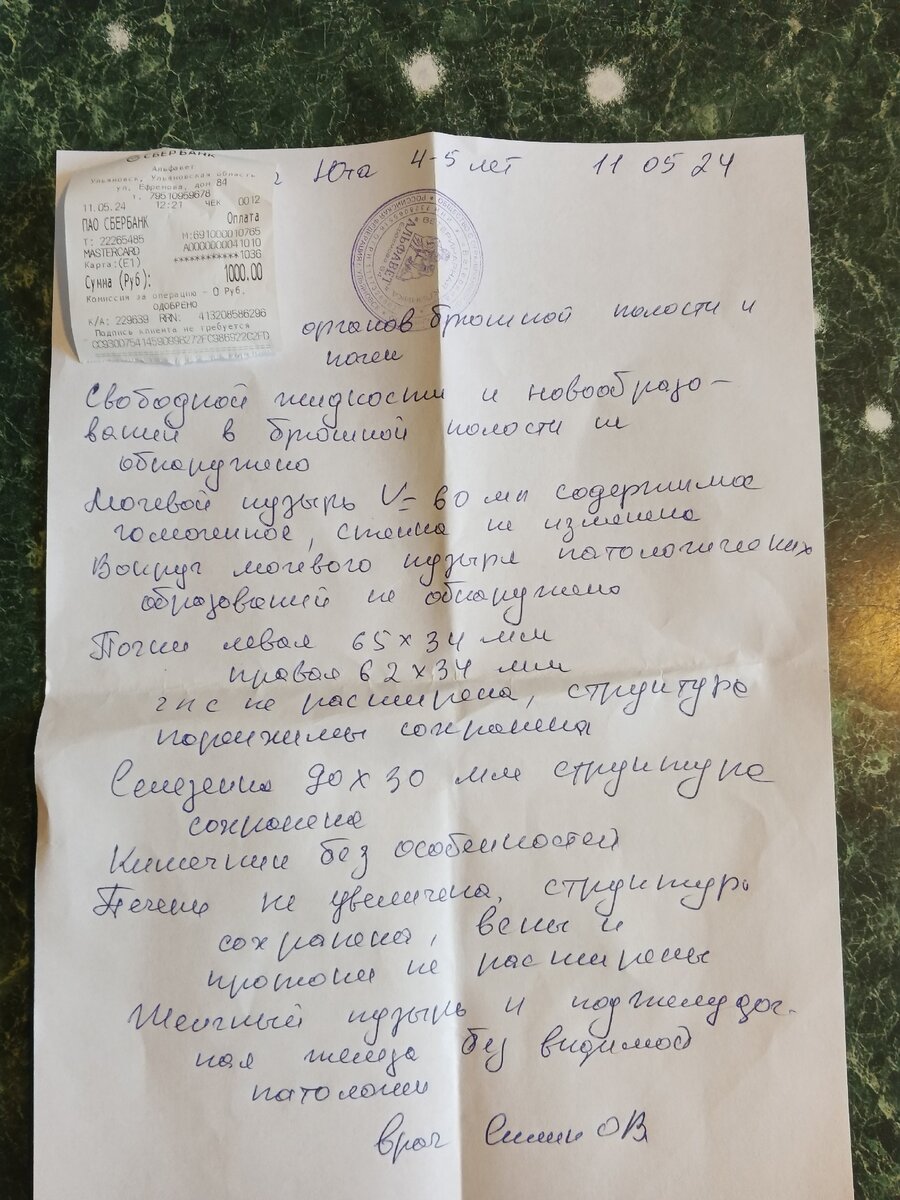 СБЕРБАНК
Альфабет
Ульяновск, Ульяновская область
ул. Ефремова, дом 84
т. 79510959678
11.05.24 12:21 ЧЕК 0012
ПАО СБЕРБАНК Оплата
Т: 22265485 М:691000010765
MASTERCARD A0000000041010
Карта:(E1) ************1036
Сумма (Руб): 1000.00
Комиссия за операцию - 0 Руб.
ОДОБРЕНО
К/А: 229639 RRN: 413208586296
Подпись клиента не требуется
Юта 4-5 лет 11 05 24
АЛЬФАВЕТ
органов брюшной полости и
почек
Свободной жидкости и новообразо-
ваний в брюшной полости не
обнаружено
Мочевой пузырь V= 60 мл содержимое
гомогенное, стенка не изменена
Вокруг мочевого пузыря патологических
образований не обнаружено
Почки левая 65 х 34 мм
правая 62 х 34 мм
чпс не расширена, структура
паренхимы сохранена
Селезенка 90 х 30 мм структура
сохранена
Кишечник без особенностей
Печень не увеличена, структура
сохранена, вены и
протоки не расширены
Желчный пузырь и поджелудоч-
ная железа без видимой
патологии
врач ОВ